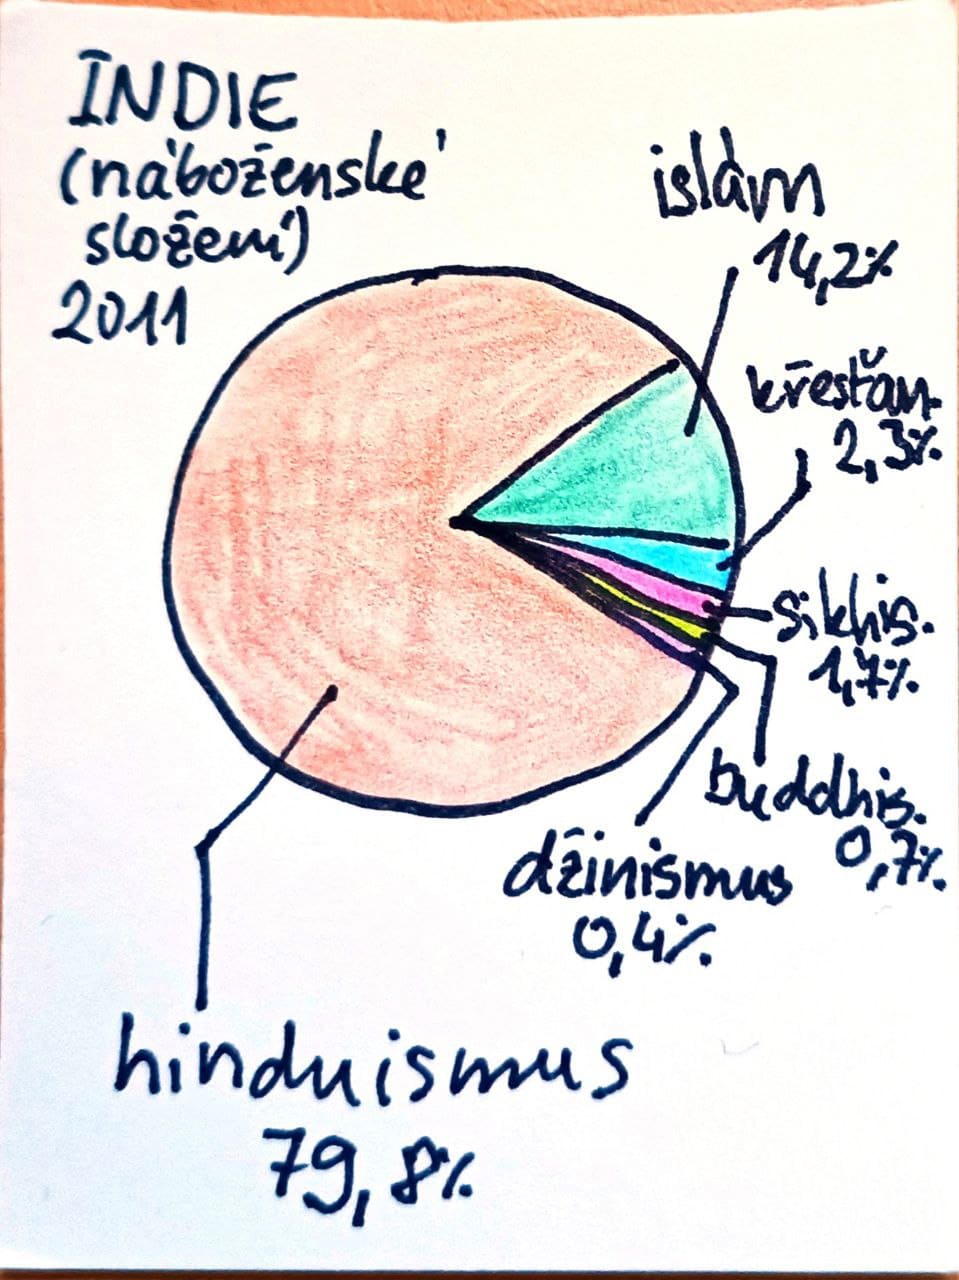 INDIE
(náboženské
složení)
2011
islám
14,2%
křesťan.
2,3%
sikhis.
1,7%
buddhis.
0,7%
džinismus
0,4%
hinduismus
79,8%